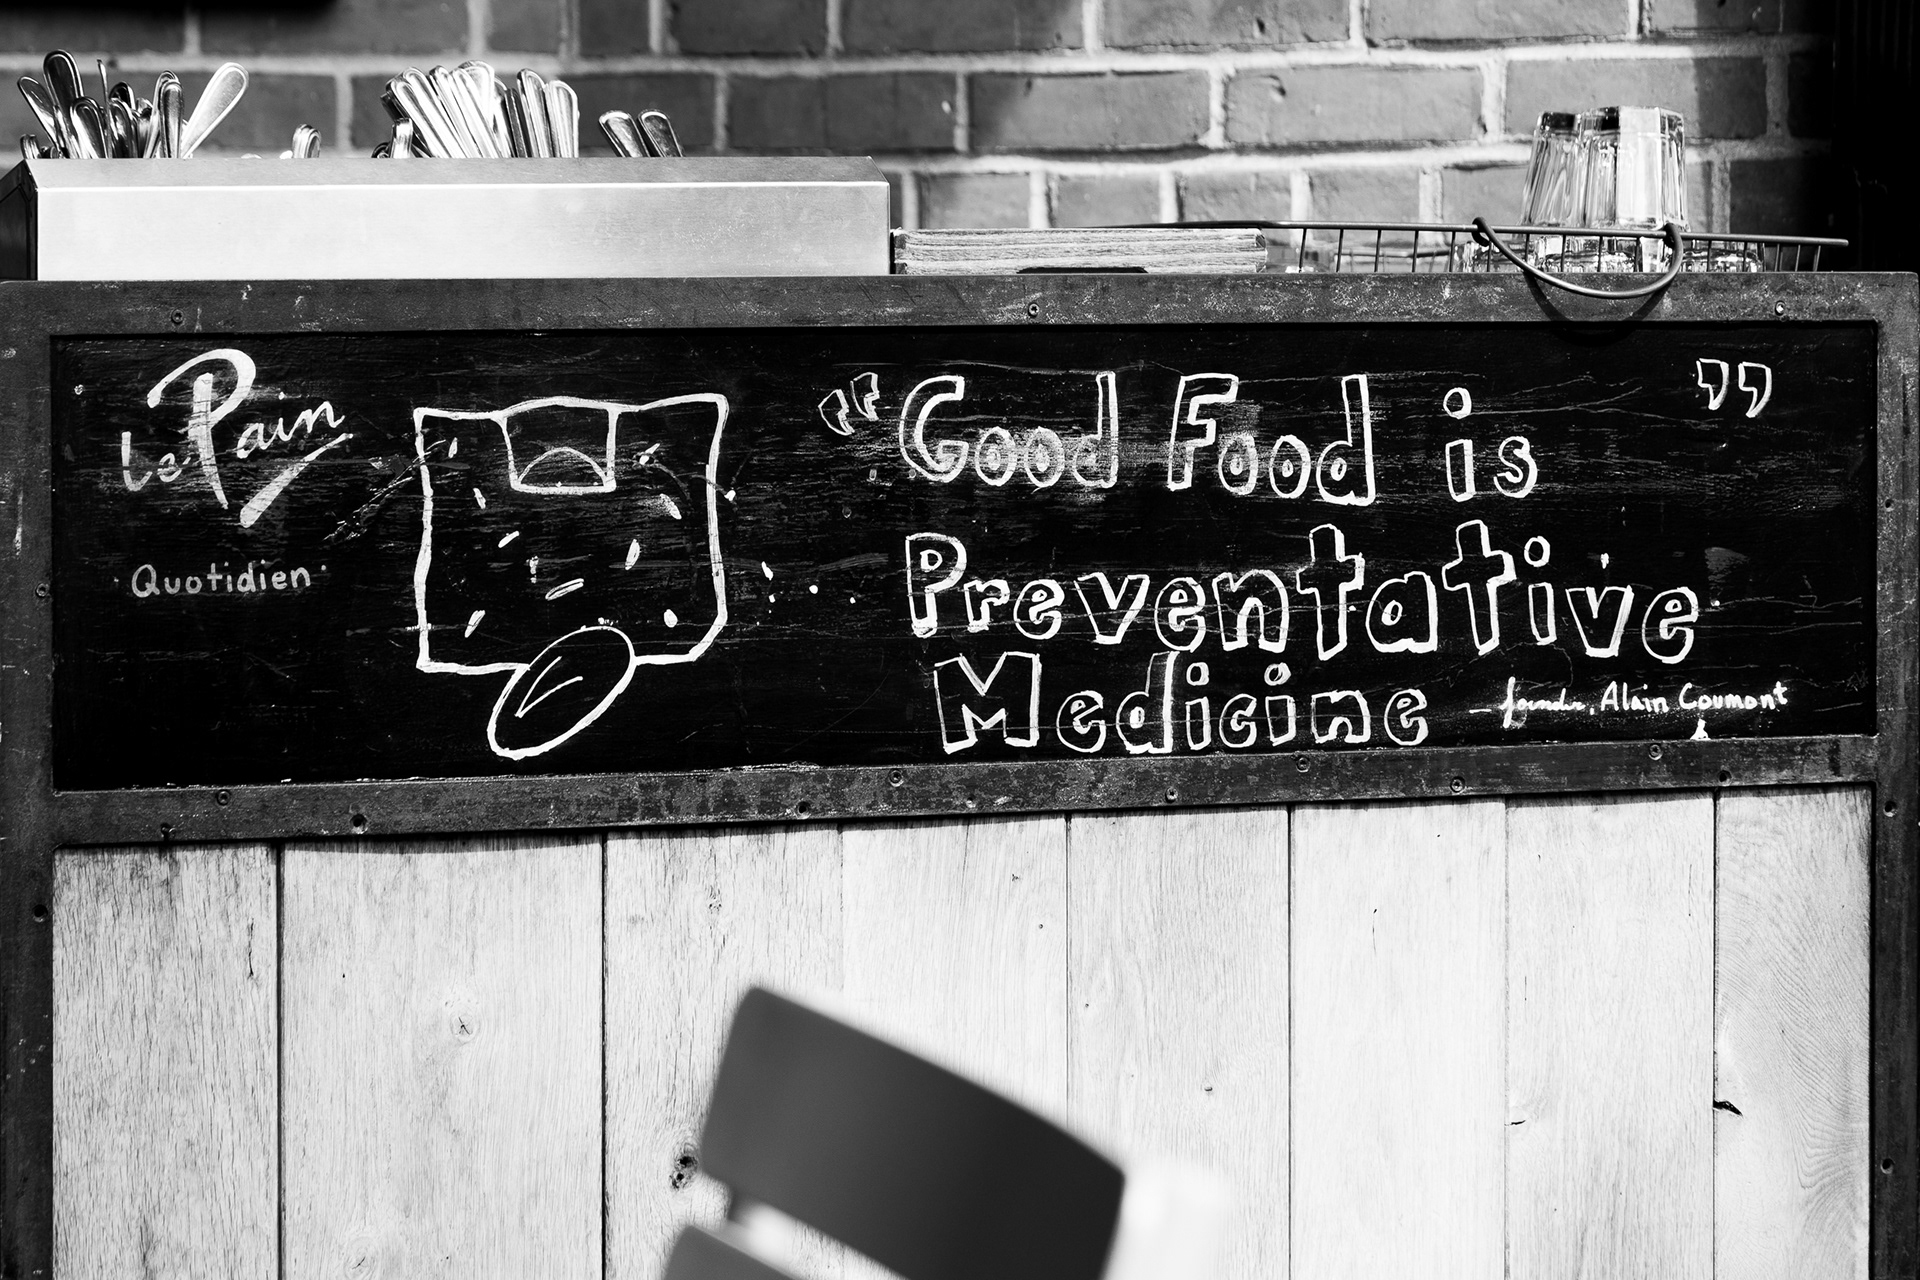 Le Pain
Quotidien
“Good Food is ”
Preventative
Medicine
– founder, Alain Coumont